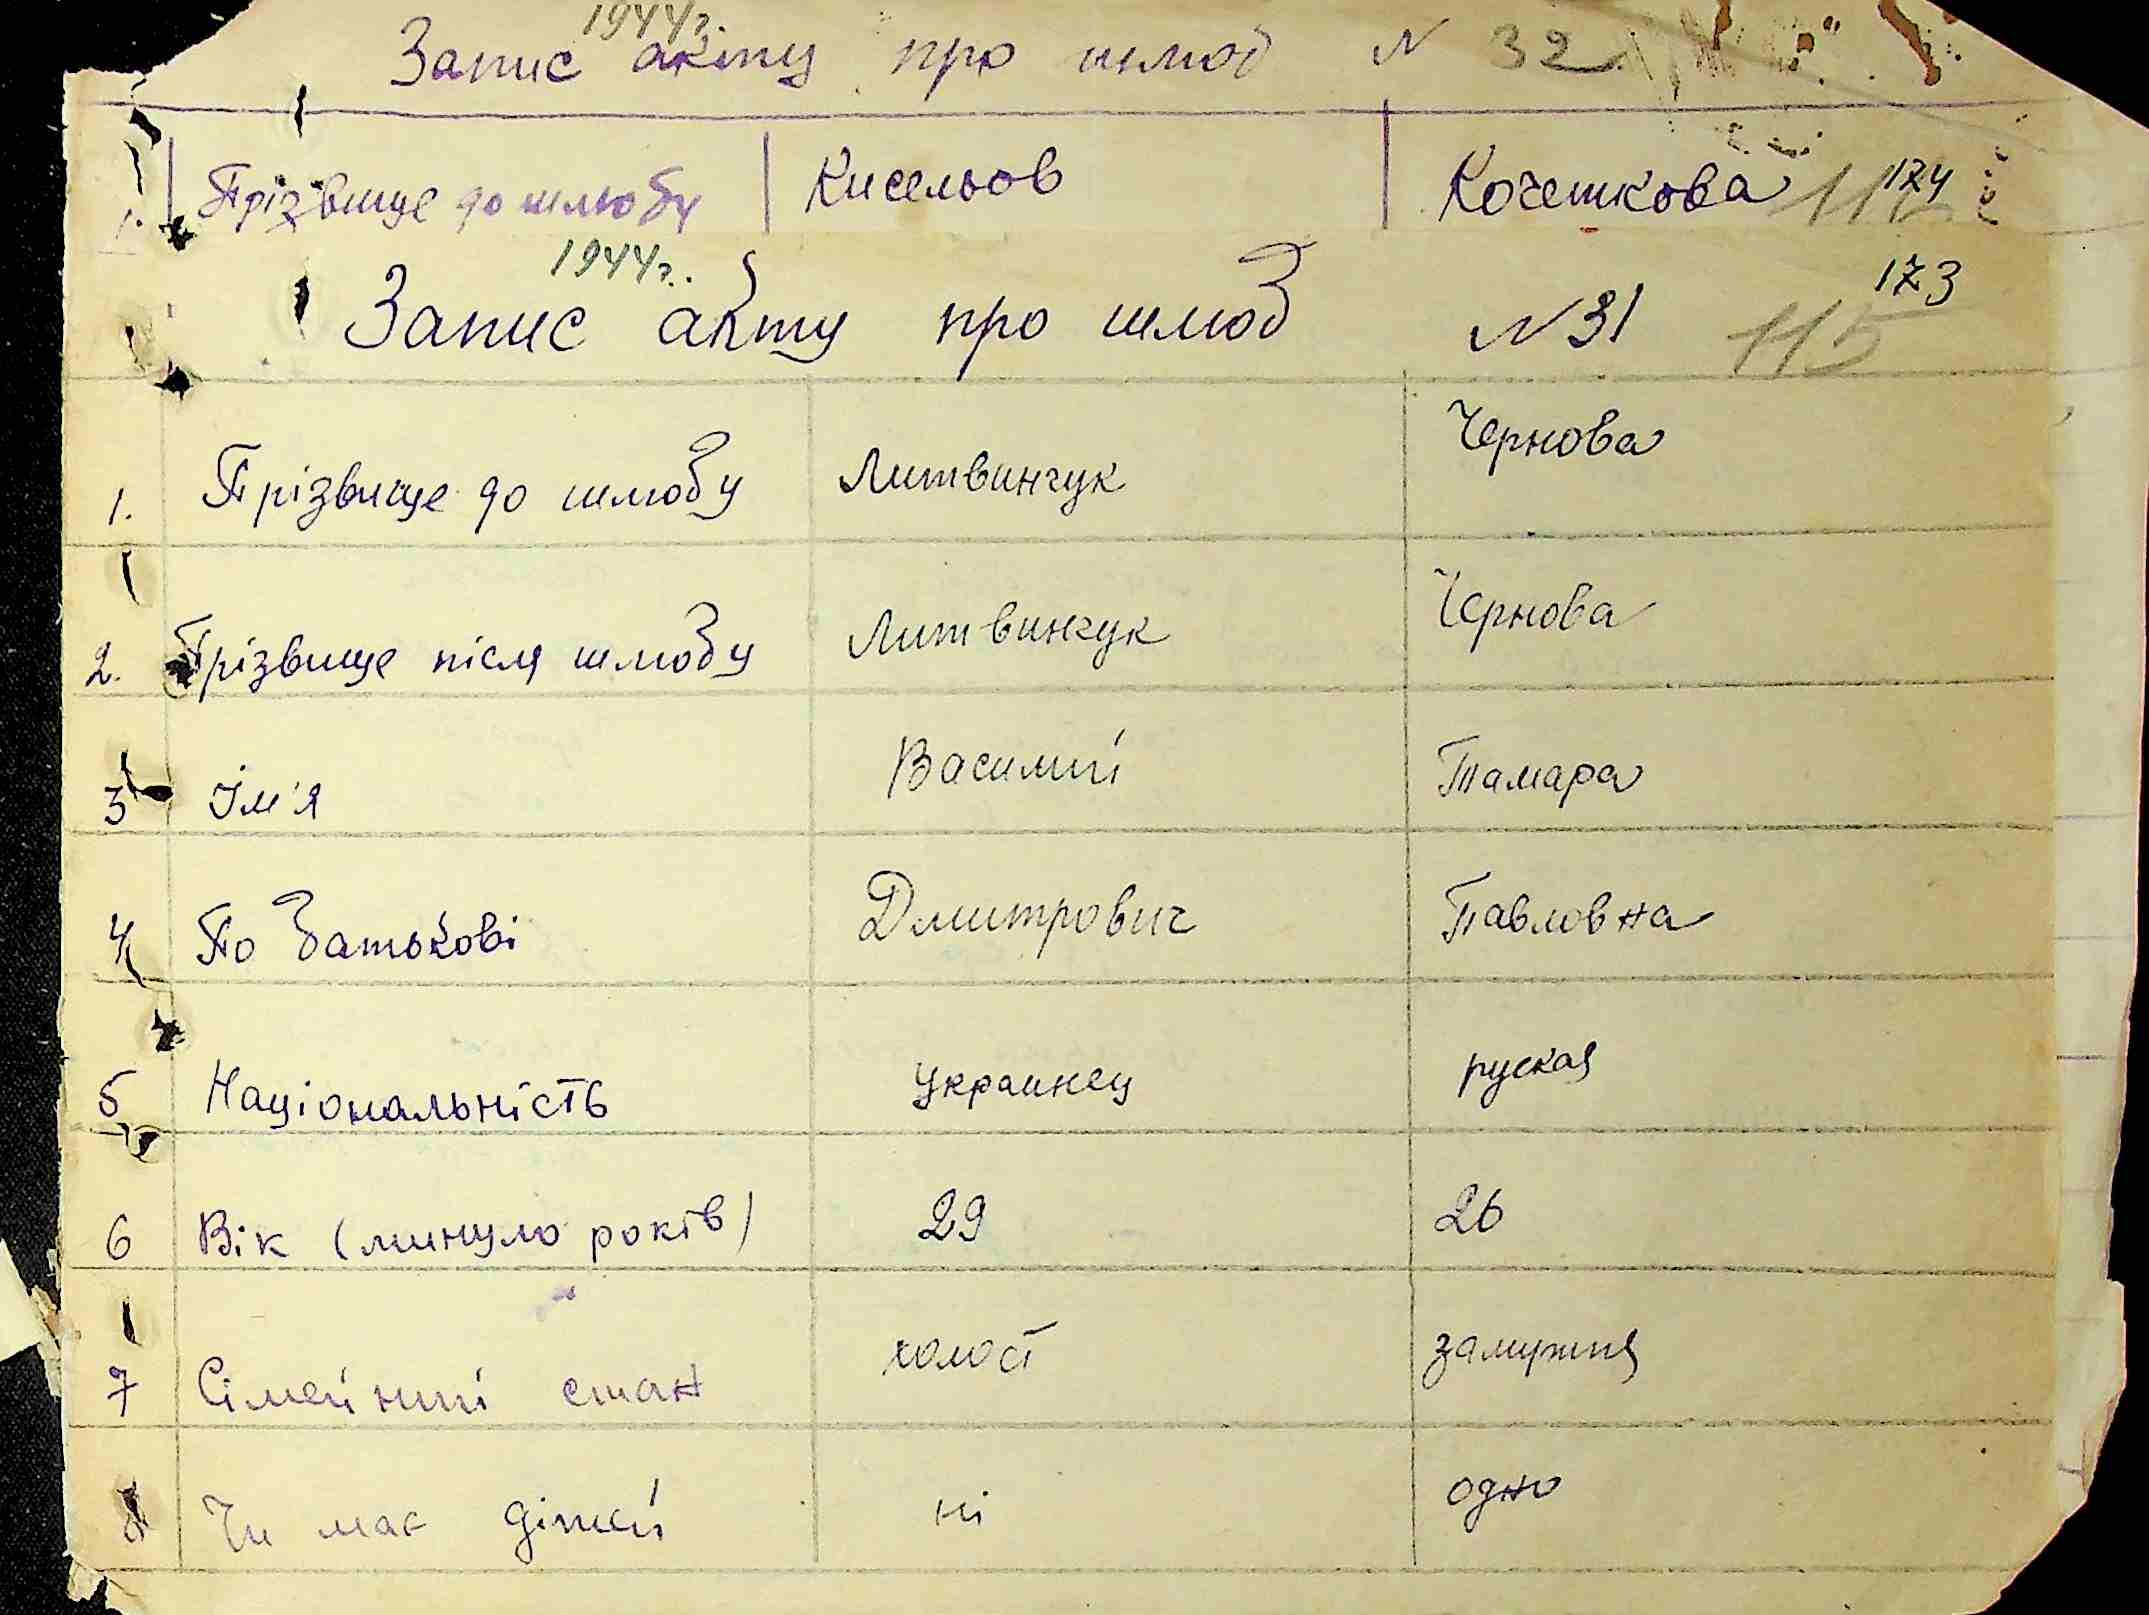 1944г.
Запис акту про шлюб N 32
1. Прізвище до шлюбу Кисельов Кочешкова 174
1944г.
173
Запис акту про шлюб N31 115
Чернова
1. Прізвище до шлюбу Литвинчук
2. Прізвище після шлюбу Литвинчук Чернова
3 Ім'я Василий Тамара
4 По батькові Дмитрович Павловна
5 Національність украинец руская
6 Вік (минуло років) 29 26
7 Сімейний стан холост замужня
8 Чи має дітей ні одно